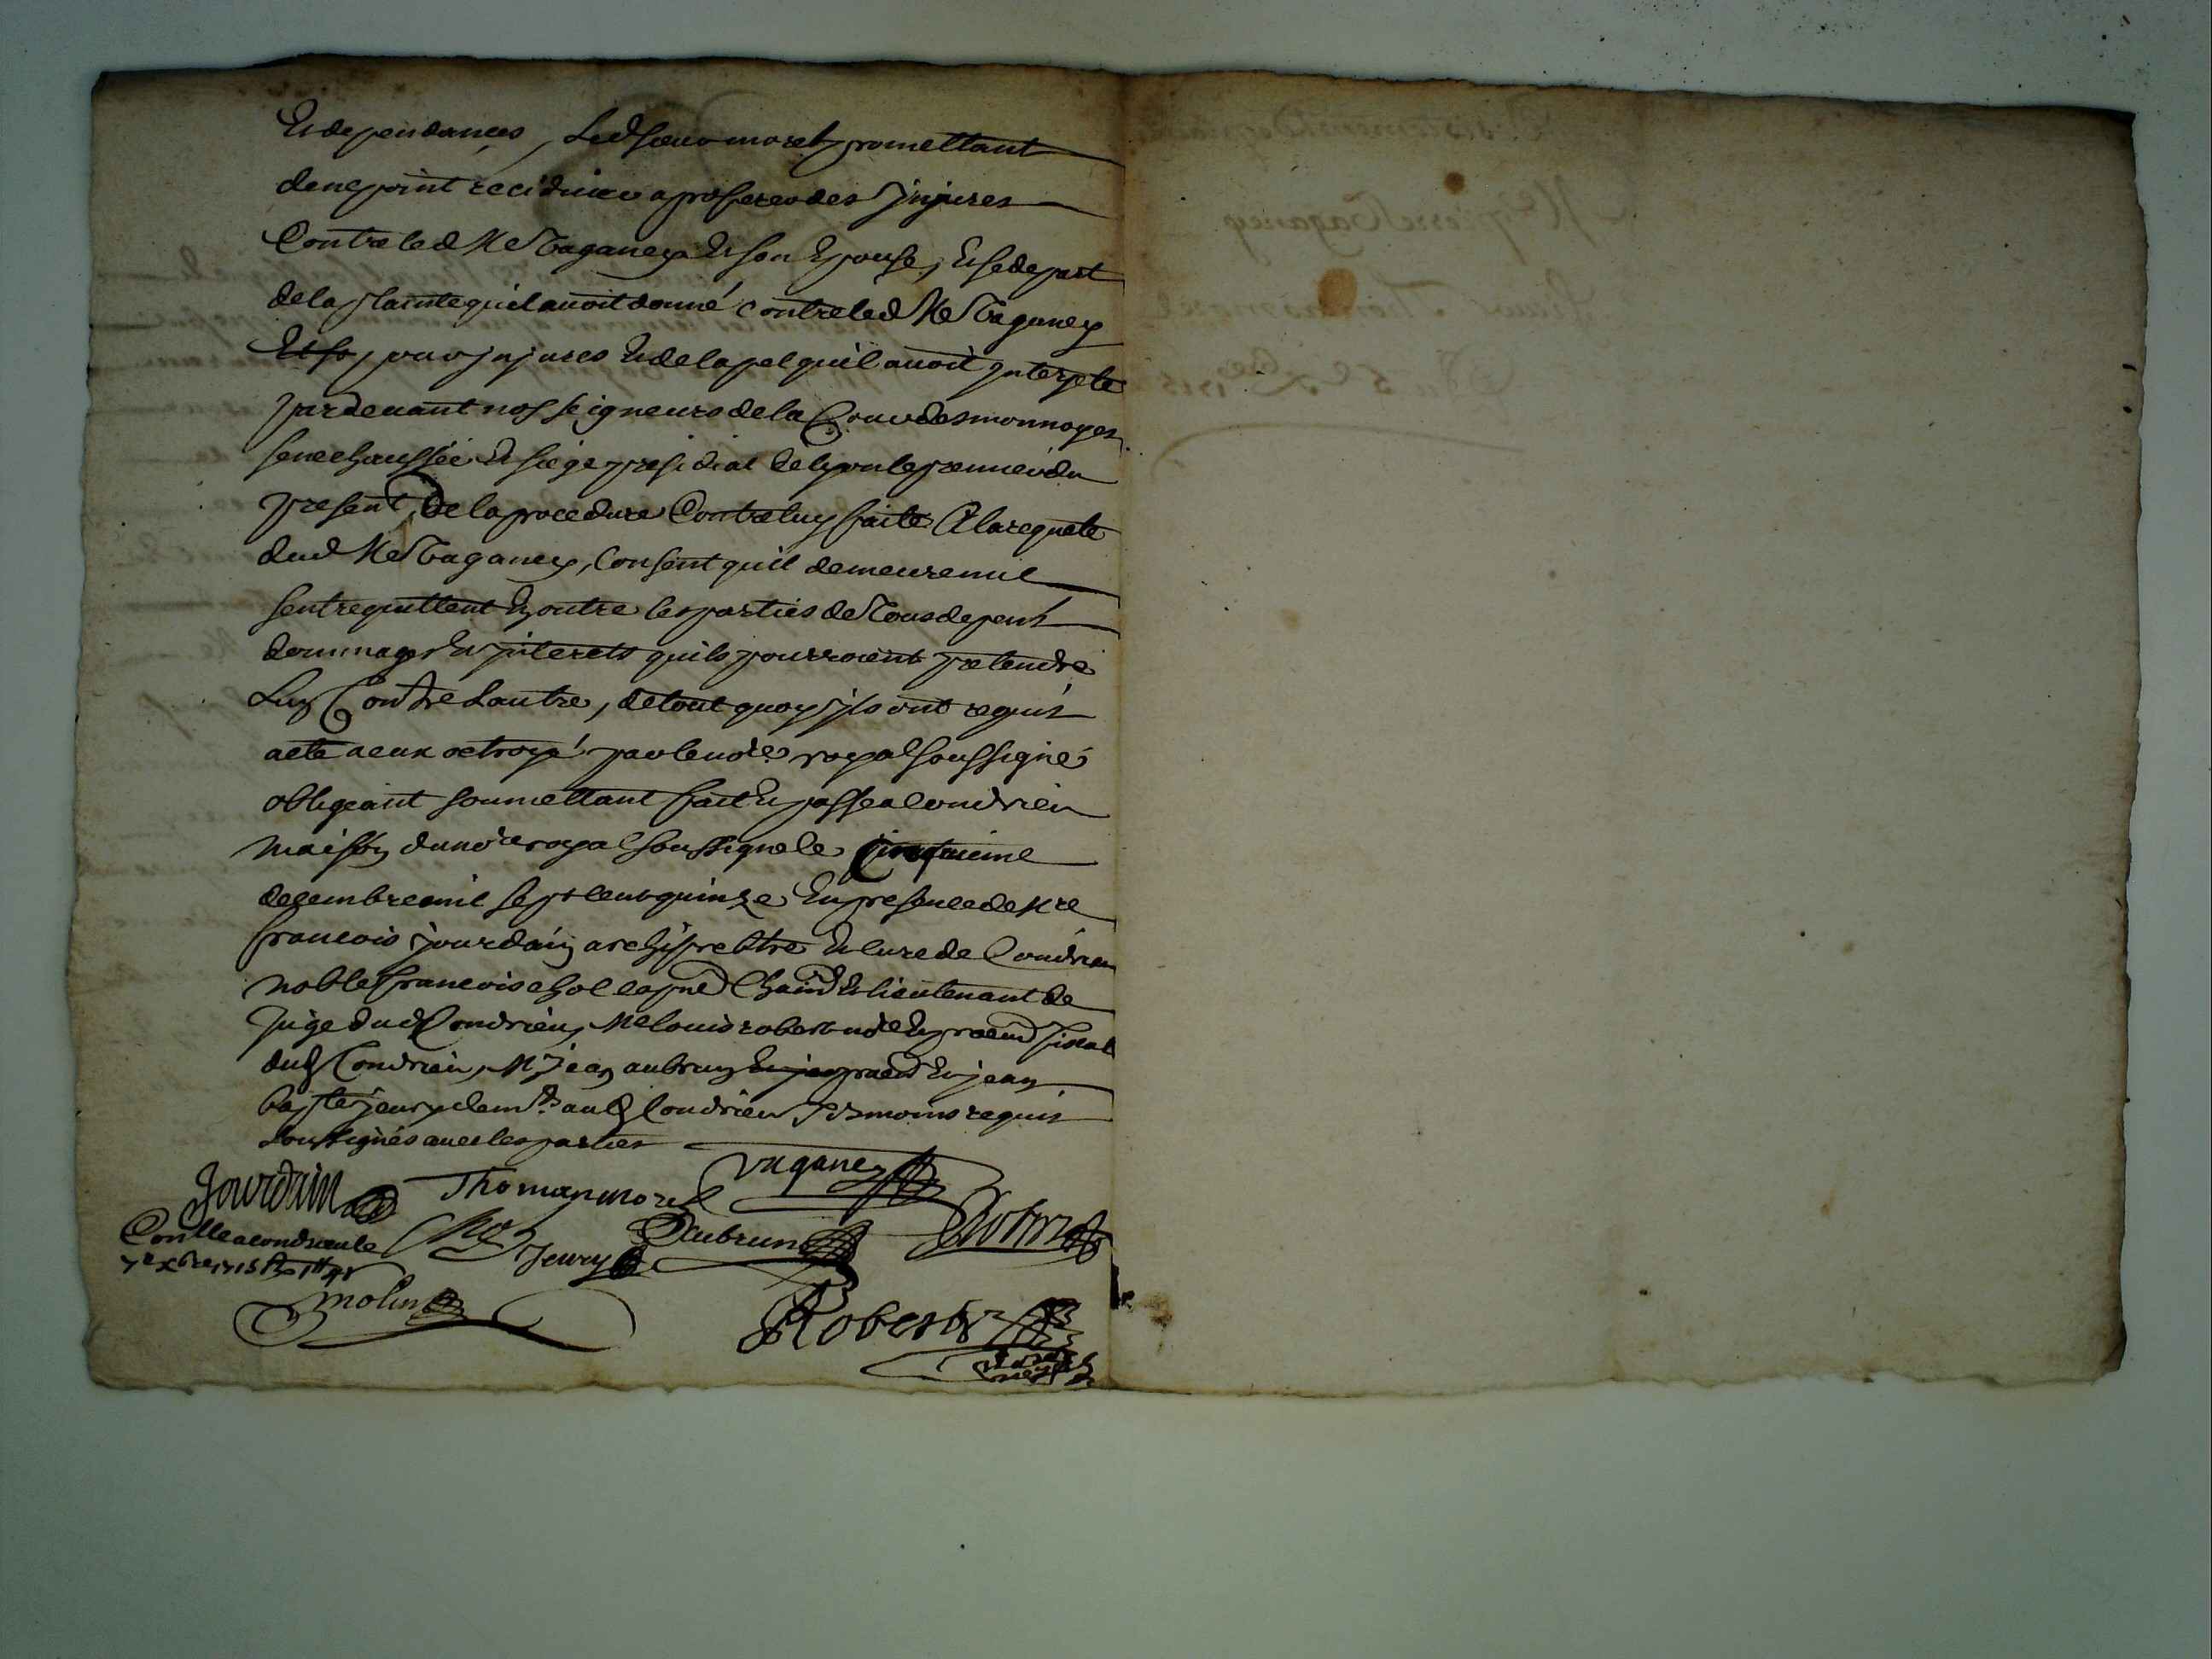 Et dependances, Led sieur morel promettant
de ne point recidiver a proferer des Injures
Contre led Me Vaganey Et son Epouse, Et se depart
de la plainte quil avoit donné Contre led Me Vaganey
Et sa, pour injures Et de lapel quil avoit Interjeté
pardevant nosseigneurs de la Cour des monnoyes
senechaussée Et siege presidial de lyon le premier du
present, De la procedure Contre luy faite A la requete
dud Me Vaganey, Consent quil demeure nul
sentrequittent En outre les parties de Tous depens
dommages Et interets quils pourroient pretendre
Lun Contre Lautre, de tout quoy Ils ont requis
acte a eux octroyé par le no.re royal soussigné
obligeant soumettant fait Et passé a Condrieu
maison du no.re royal soussigné le Cinquieme
decembre mil sept cent quinze En presence de Mre
francois jourdain archiprebtre Et curé de Condrieu
noble francois chol Et lieutenant de
Juge dud Condrieu, Me louis robert no.re Et fiscal
dud Condrieu, Mr Jean aubrun Et jean
bap.te jeury aud Condrieu Tesmoins requis
soussignés avec les parties
Jourdain Thomas morel Vaganey
Chol Jeury Daubrun Robert
Con.lle a condrieu le
7e xbre 1715
molin
Robert
Me pierre Vaganey
Sieur morel
Du 5e Xbre 1715